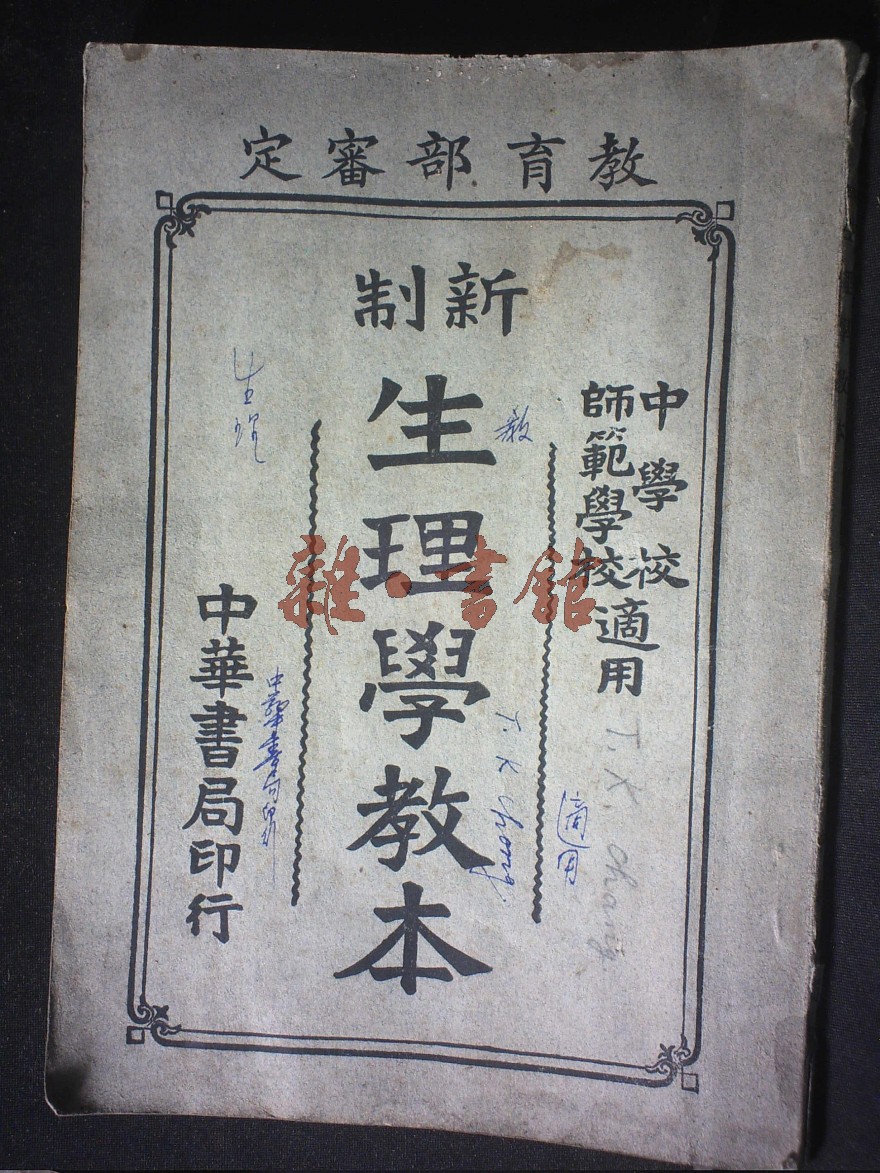 教育部審定
中學校
師範學校適用
新制
生理學教本
中華書局印行
教
T. K Chong.
適用
T. K. Chong.
生理
中華書局印行
雜·書館